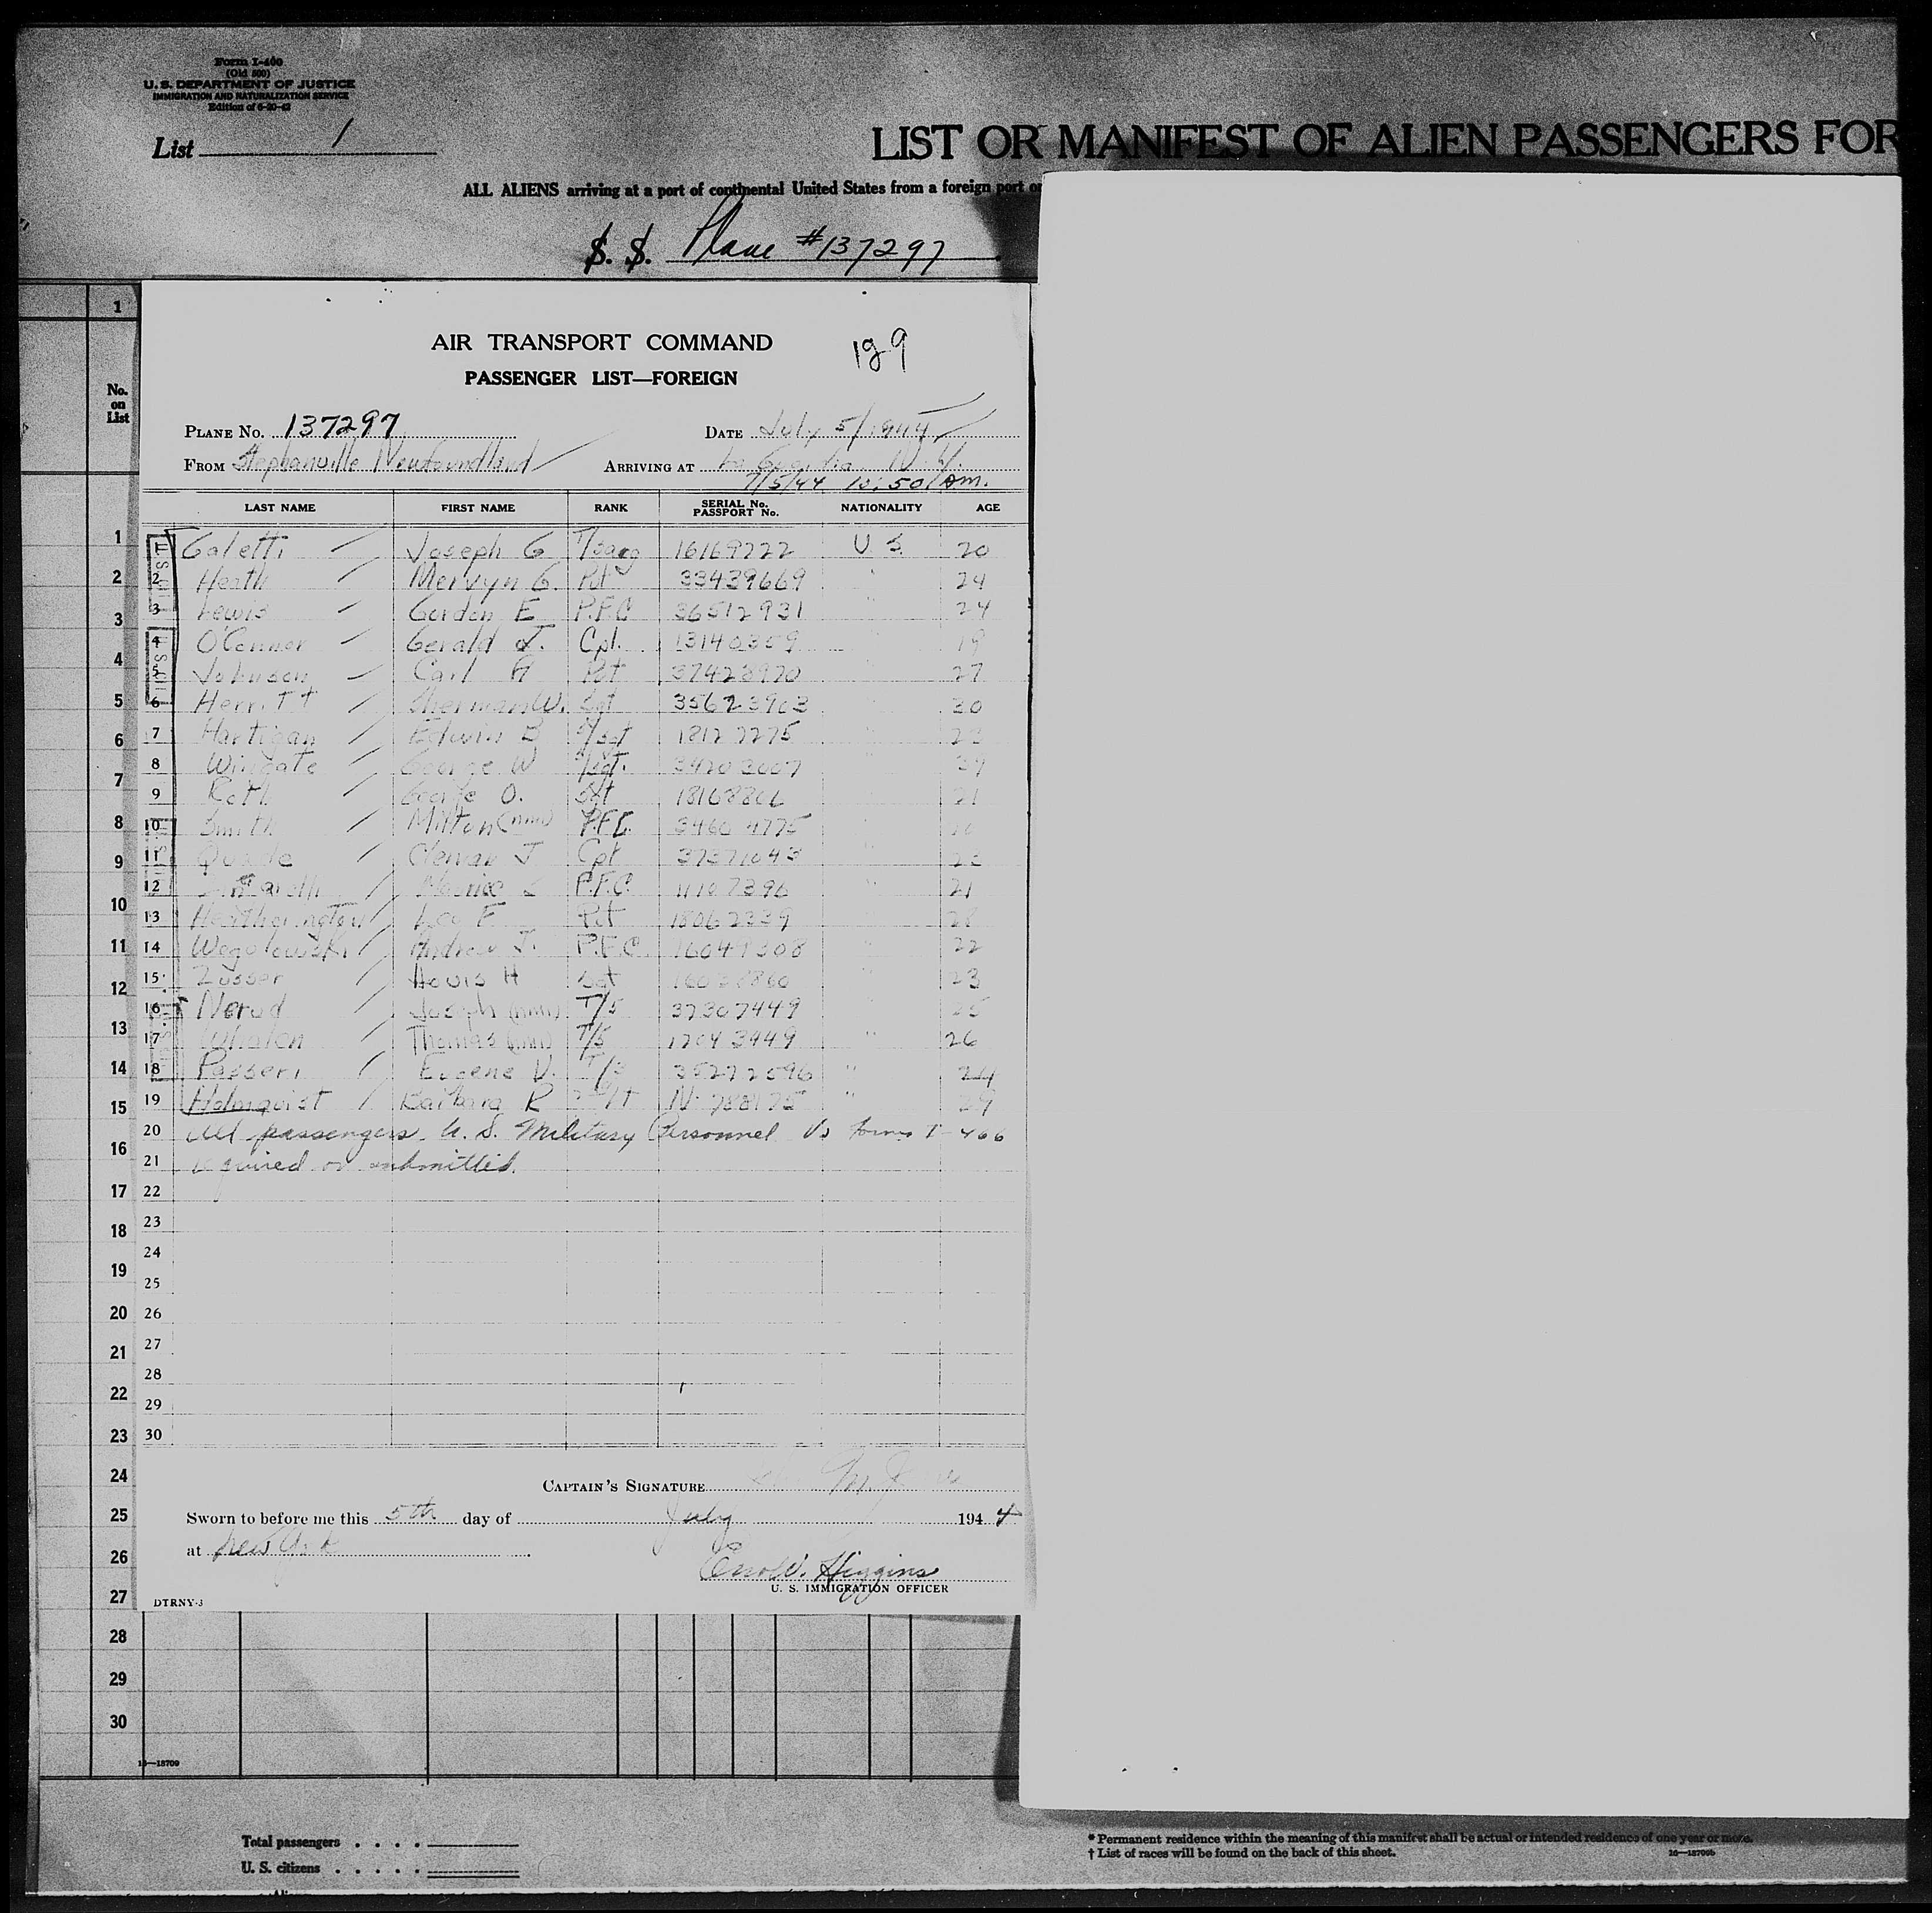 Form I-460
(Old 500)
U. S. DEPARTMENT OF JUSTICE
IMMIGRATION AND NATURALIZATION SERVICE
Edition of 6-20-42
List 1
LIST OR MANIFEST OF ALIEN PASSENGERS FOR
ALL ALIENS arriving at a port of continental United States from a foreign port or
S. S. Plane #137297
AIR TRANSPORT COMMAND
129
PASSENGER LIST—FOREIGN
PLANE NO. 137297 DATE July 5/1944
FROM Stephanville Newfoundland ARRIVING AT La Guardia N.Y.
7/5/44 10:50
No. on List
LAST NAME FIRST NAME RANK SERIAL No. PASSPORT No. NATIONALITY AGE
1 Galetti Joseph G T/Sarg 16169222 U S. 20
2 Heath Mervyn G. Pvt 33439669 " 24
3 Lewis Gordon E P.F.C 36512931 " 24
4 O'Connor Gerald J. Cpl. 13140359 19
5 Johnson Carl A Pvt 37428970 27
6 Herritt Sherman W. Sgt 35623903 30
7 Hartigan Edwin B S/Sgt 18122275
8 Wingate George W S/Sgt. 34203007
9 Roth George O. Sgt 21
10 Smith Milton (nmi) P.F.C. 34604775
11 J Cpl 37371043
12 Maurice P.F.C. 11107396 21
13 Heatherington Leo F Pvt 18062339 28
14 Andrew J. P.F.C. 16047308 22
15 Zusser Louis H Sgt 23
16 Nerud Joseph (nmi) T/5 37307449 25
17 Whalen Thomas (nmi) T/5 17043449 " 26
18 Passeri Eugene V. T/3 35272596 " 24
19 Holmquist Barbara R N- 788175 "
20 All passengers U. S. Military Personnel No forms I-466
21 required or submitted.
22
23
24
25
26
27
28
29
30
CAPTAIN'S SIGNATURE
Sworn to before me this 5th day of July 1944
at New York
Higgins
U. S. IMMIGRATION OFFICER
DTRNY-3
1
2
3
4
5
6
7
8
9
10
11
12
13
14
15
16
17
18
19
20
21
22
23
24
25
26
27
28
29
30
16—18709
Total passengers . . . .
U. S. citizens . . . . .
* Permanent residence within the meaning of this manifest shall be actual or intended residence of one year or more.
† List of races will be found on the back of this sheet.